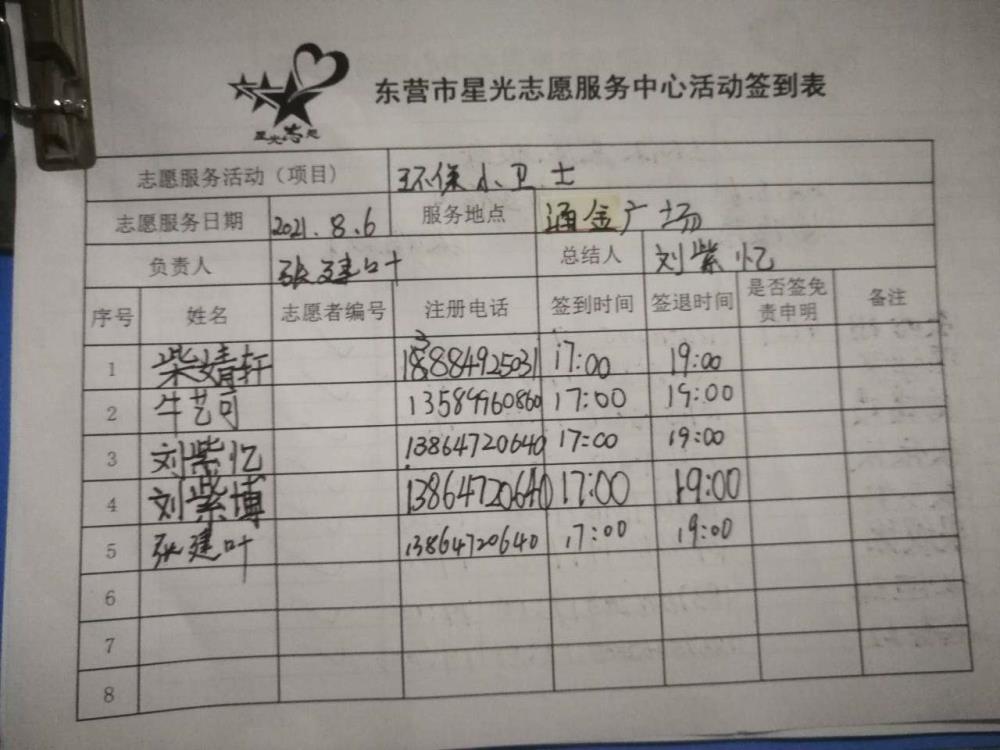 星光志愿
东营市星光志愿服务中心活动签到表
志愿服务活动（项目） 环保小卫士
志愿服务日期 2021.8.6 服务地点 通金广场
负责人 张建叶 总结人 刘紫忆
序号 姓名 志愿者编号 注册电话 签到时间 签退时间 是否签免责申明 备注
1 柴婧轩 17:00 19:00
2 牛艺可 13589960860 17:00 19:00
3 刘紫忆 13864720640 17:00 19:00
4 刘紫博 13864720640 17:00 19:00
5 张建叶 13864720640 17:00 19:00
6
7
8